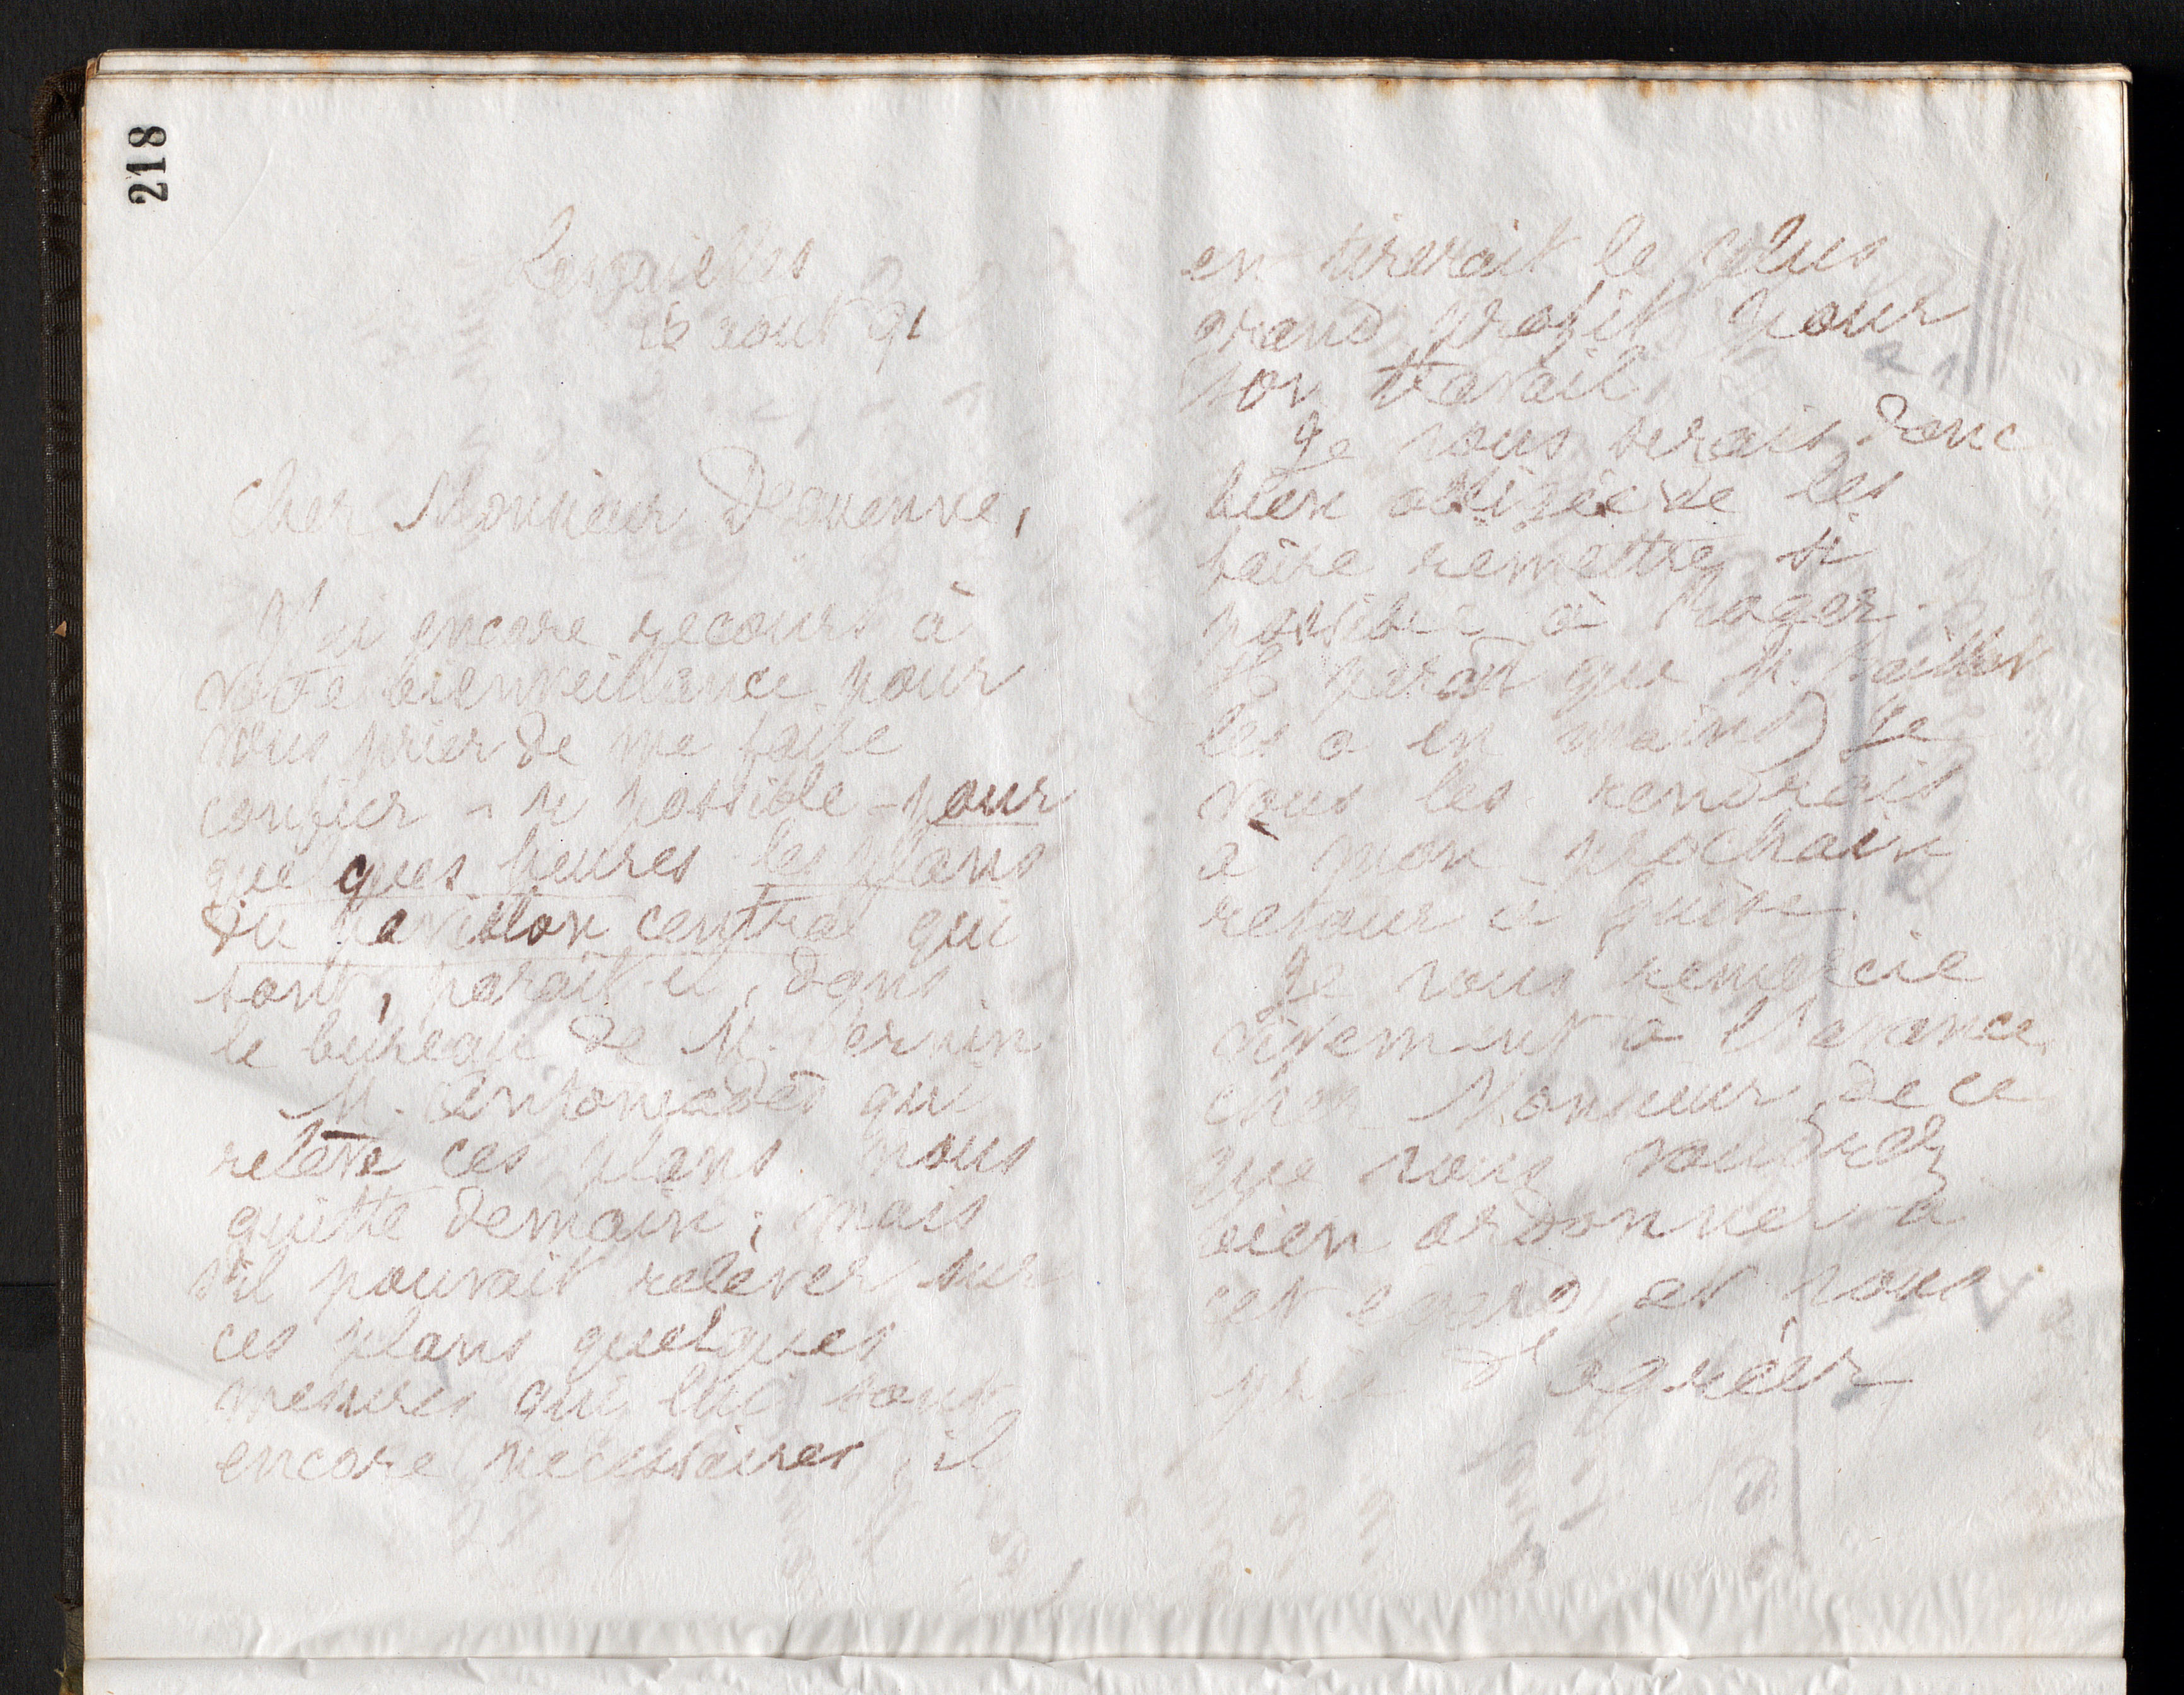 218
Lesquielles
16 aout 91
Cher Monsieur Dequenne,
J'ai encore recours à
votre bienveillance pour
vous prier de me faire
confier - si possible - pour
quelques heures les plans
du pavillon central qui
sont, paraît-il, dans
le bureau de M. Pernin
M. Antoniadès qui
relève ces plans nous
quitte demain; mais
s'il pouvait relever sur
ces plans quelques
mesures qui lui sont
encore nécessaires, il
en tirerait le plus
grand profit pour
son travail.
Je vous serais donc
bien obligée de les
faire remettre si
possible à Roger.
Il paraît que M.
les a en mains) Je
vous les rendrais
à mon prochain
retour à Guise.
Je vous remercie
vivement à l'avance,
cher Monsieur, de ce
que vous voudrez
bien ordonner à
cet égard, et vous
prie d'agréer